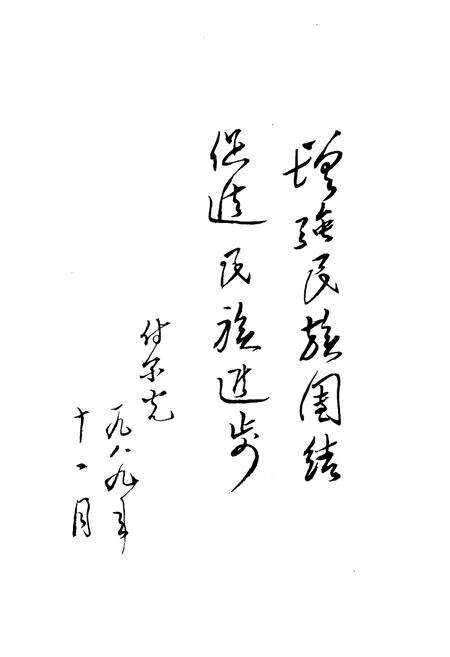 增强民族團结
促进民族进步
一九八九年
十一月